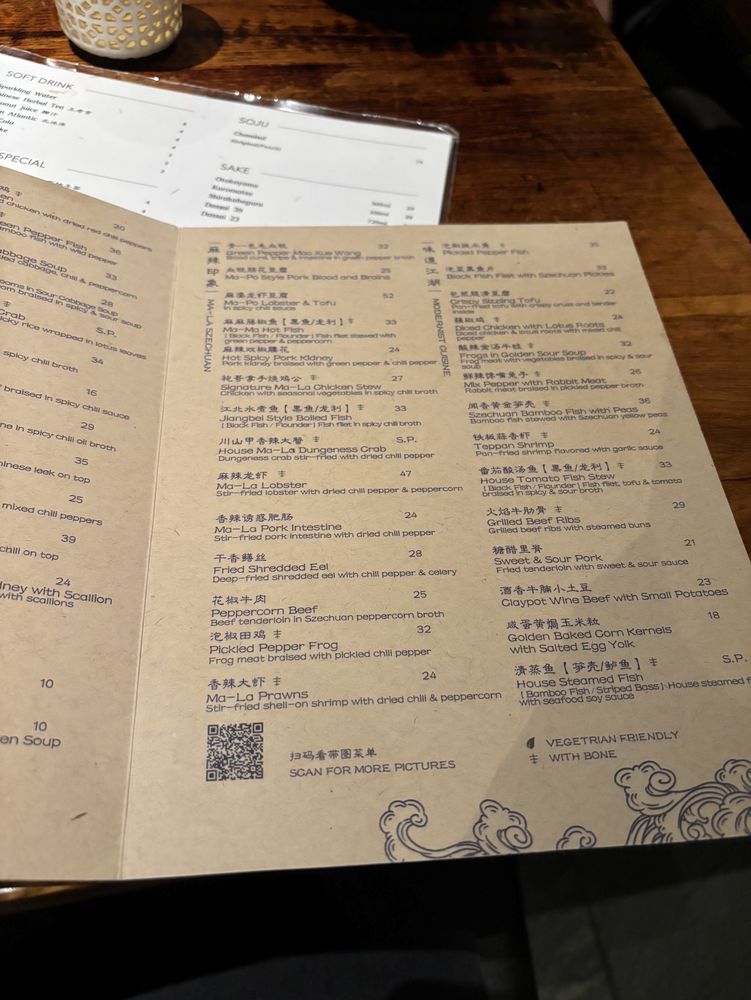 SOFT DRINK
Sparkling Water
Chinese Herbal Tea
juice 椰汁
Atlantic 北冰洋
Cola
SPECIAL
SOJU
SAKE
Otokoyama
Kuromatsu
Shirakabegura
Dassai 39
Dassai 23
300ml
720ml
20
chicken with dried red chili peppers
Green Pepper Fish 36
bamboo fish with wild pepper
Cabbage Soup 33
cabbage, chili & peppercorn
28
in Sour Cabbage Soup
braised in spicy & sour soup
Crab S.P.
sticky rice wrapped in lotus leaves
34
spicy chili broth
16
braised in spicy chili sauce
29
in spicy chili oil broth
35
chinese leek on top
25
mixed chili peppers
39
chili on top
24
Kidney with Scallion
with scallions
10
10
Soup
麻辣印象
MA-LA SICHUAN
青一色毛血旺 32
Green Pepper Mao Xue Wang
Blood curd, tripe & intestine in green pepper broth
血旺脑花豆腐 25
Ma-Po Style Pork Blood and Brains
麻婆龙虾豆腐 52
Ma-Po Lobster & Tofu
in spicy chili sauce
麻麻藤椒鱼【黑鱼/龙利】 33
Ma-Ma Hot Fish
[ Black Fish / Flounder ] Fish filet stewed with
green pepper & peppercorn
麻辣炝椒腰花 24
Hot Spicy Pork Kidney
Pork kidney braised with green pepper & chili pepper
袍哥拿手烧鸡公 27
Signature Ma-La Chicken Stew
Chicken with seasonal vegetables in spicy chili broth
江北水煮鱼【黑鱼/龙利】 33
Jiangbei Style Boiled Fish
[ Black Fish / Flounder ] Fish filet in spicy chili broth
川山甲香辣大蟹 S.P.
House Ma-La Dungeness Crab
Dungeness crab stir-fried with dried chili pepper
麻辣龙虾 47
Ma-La Lobster
Stir-fried lobster with dried chili pepper & peppercorn
香辣诱惑肥肠 24
Ma-La Pork Intestine
Stir-fried pork intestine with dried chili pepper
干香鳝丝 28
Fried Shredded Eel
Deep-fried shredded eel with chili pepper & celery
花椒牛肉 25
Peppercorn Beef
Beef tenderloin in Szechuan peppercorn broth
泡椒田鸡 32
Pickled Pepper Frog
Frog meat braised with pickled chili pepper
香辣大虾 24
Ma-La Prawns
Stir-fried shell-on shrimp with dried chili & peppercorn
扫码看带图菜单
SCAN FOR MORE PICTURES
味道江湖
MODERNIST CUISINE
35
Pickled Pepper Fish
泡菜黑鱼片 33
Black Fish Filet with Szechuan Pickles
包浆脆滑豆腐 22
Crispy Sizzling Tofu
Pan-fried tofu with crispy crust and tender
inside
藕椒鸡 24
Diced Chicken with Lotus Roots
Diced chicken & lotus roots with mixed chili
pepper
酸辣金汤牛蛙 32
Frogs in Golden Sour Soup
Frog meat with vegetables braised in spicy & sour
soup
鲜辣馋嘴兔子 26
Mix Pepper with Rabbit Meat
Rabbit meat braised in pickled pepper broth
闻香黄金笋壳 36
Szechuan Bamboo Fish with Peas
Bamboo fish stewed with Szechuan yellow peas
铁板蒜香虾 24
Teppan Shrimp
Pan-fried shrimp flavored with garlic sauce
番茄酸汤鱼【黑鱼/龙利】 33
House Tomato Fish Stew
[ Black Fish / Flounder ] Fish filet, tofu & tomato
braised in spicy & sour broth
火焰牛肋骨 29
Grilled Beef Ribs
Grilled beef ribs with steamed buns
糖醋里脊 21
Sweet & Sour Pork
Fried tenderloin with sweet & sour sauce
酒香牛腩小土豆 23
Claypot Wine Beef with Small Potatoes
咸蛋黄焗玉米粒 18
Golden Baked Corn Kernels
with Salted Egg Yolk
清蒸鱼【笋壳/鲈鱼】 S.P.
House Steamed Fish
[ Bamboo Fish / Striped Bass ] House steamed
with seafood soy sauce
VEGETRIAN FRIENDLY
WITH BONE